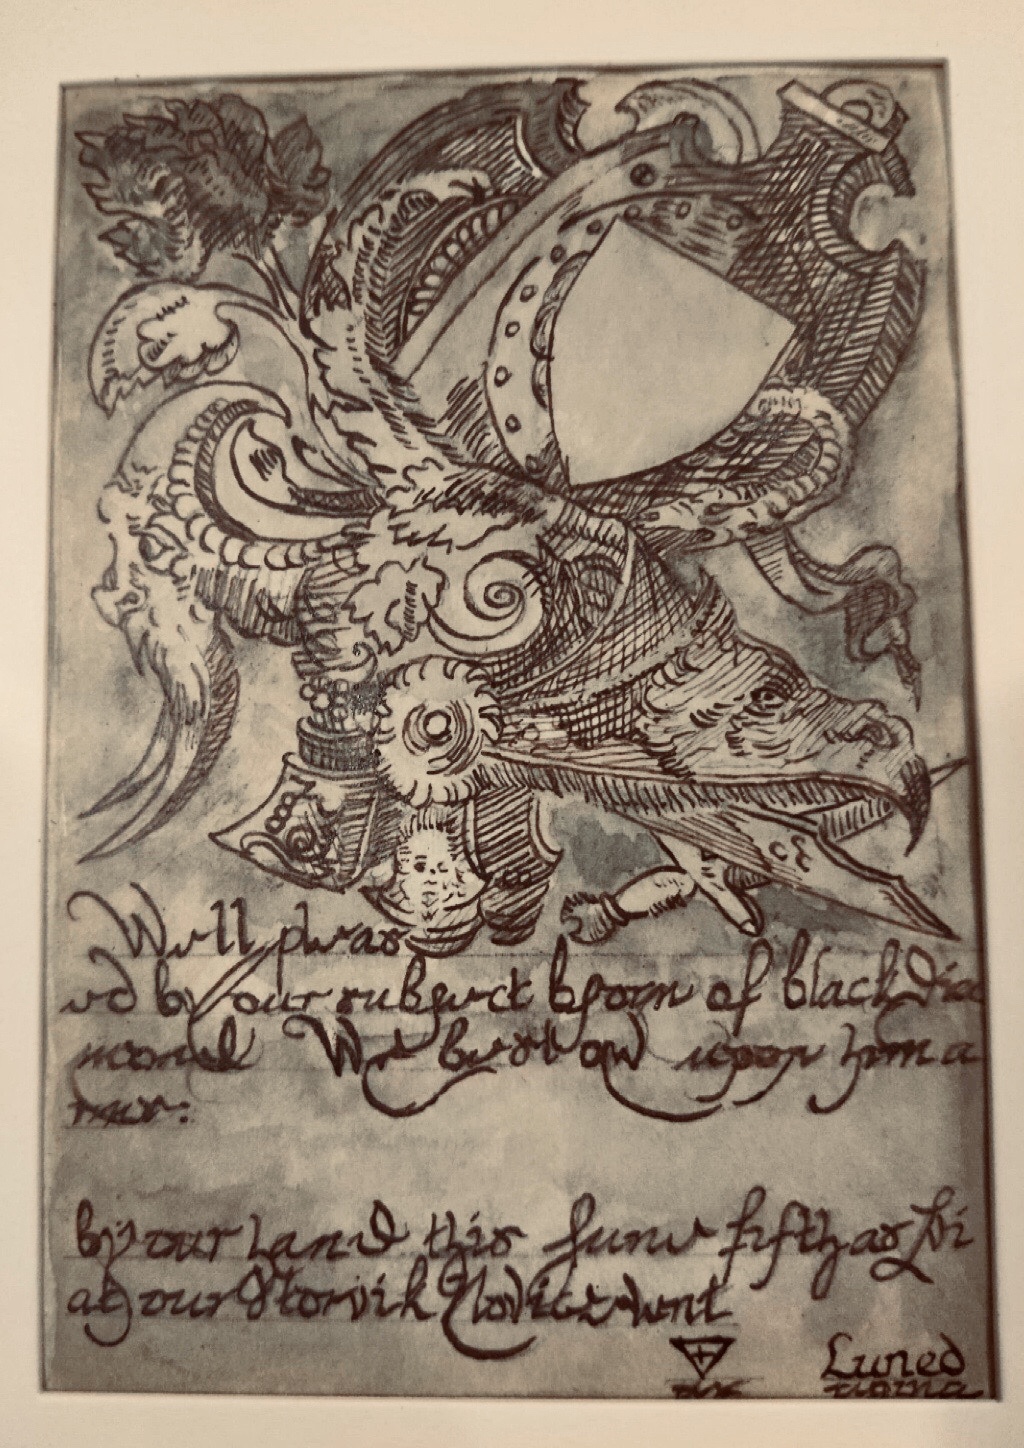 Well pleas
ed by our subject bjorn of black dia
mond We bestow upon him a
by our hand this June fifth as li
at our Storvik Novice
Luned